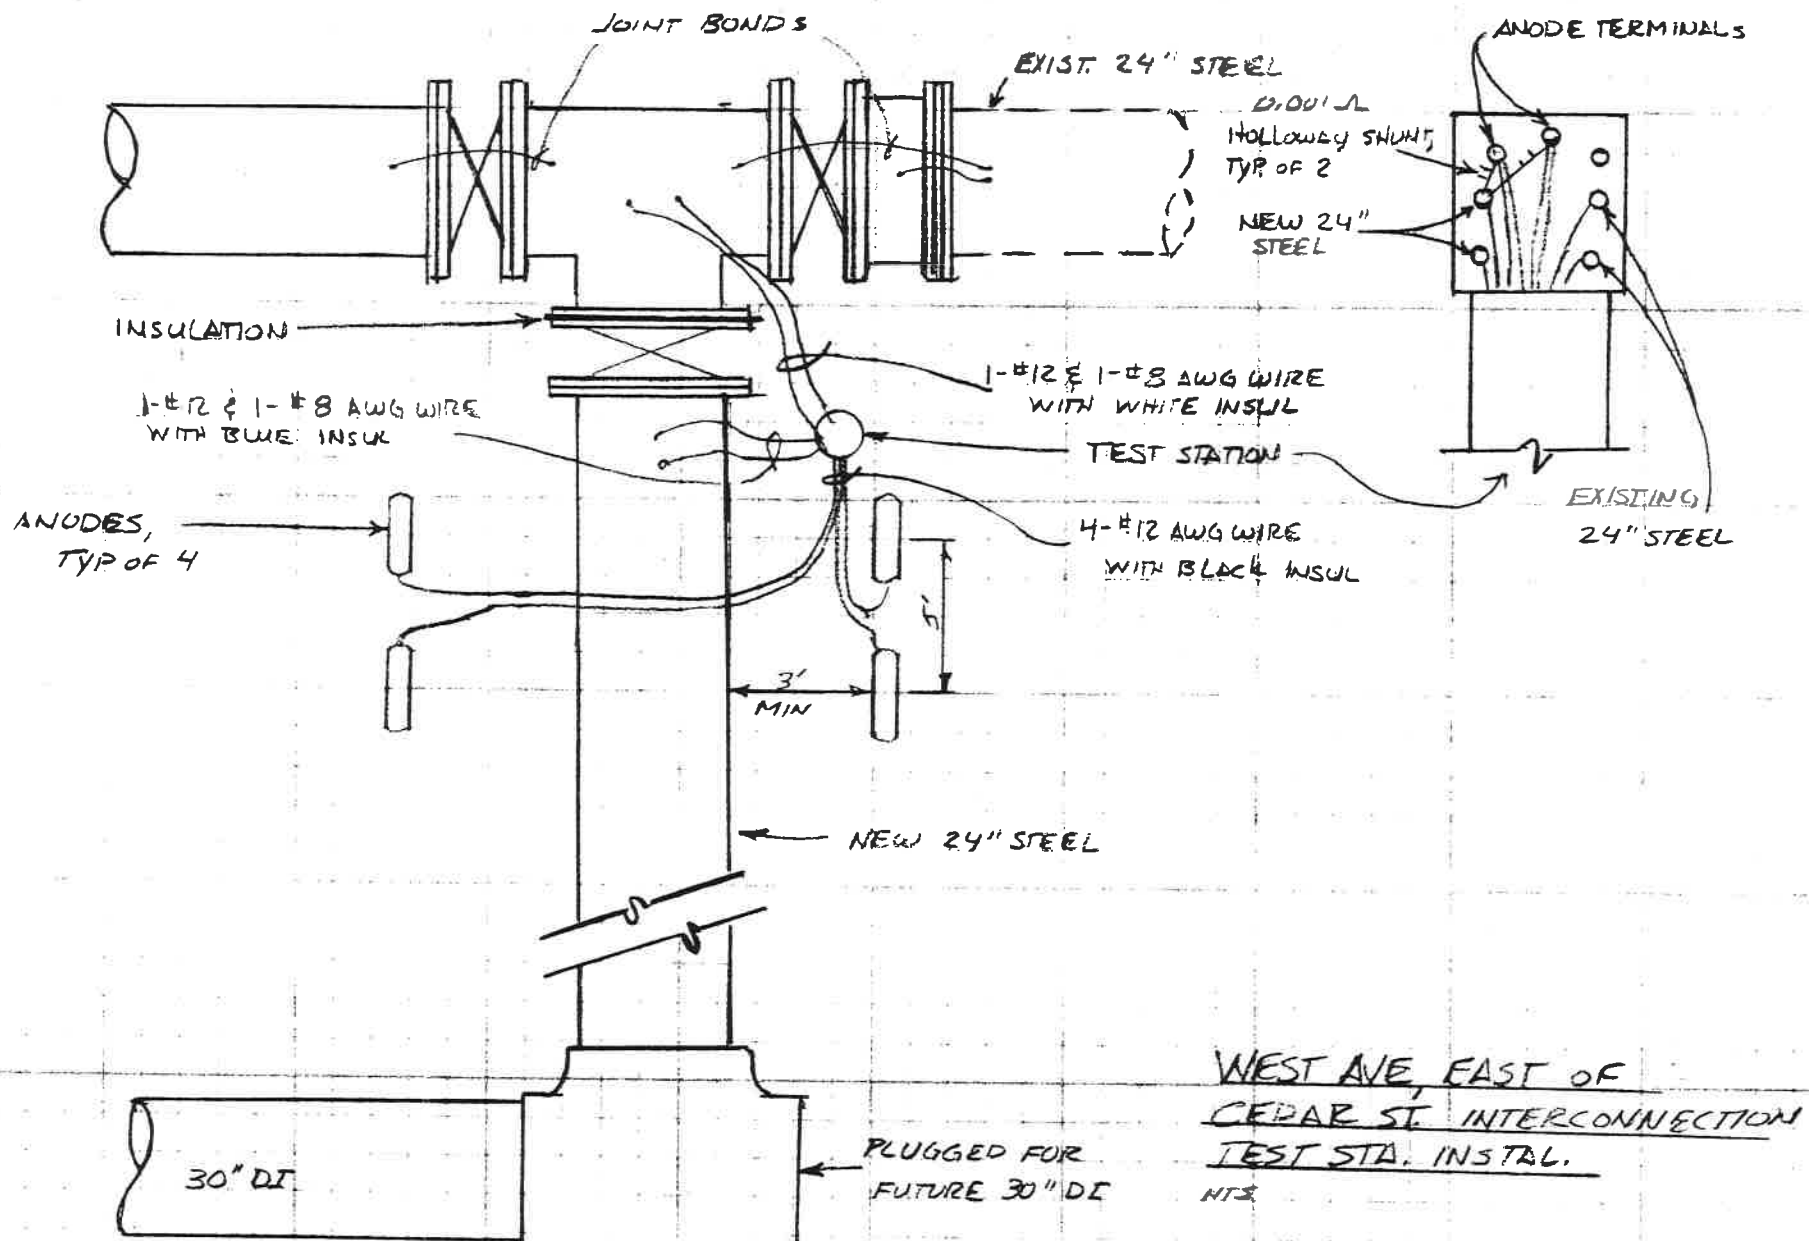 JOINT BONDS
EXIST. 24" STEEL
ANODE TERMINALS
0.001 Ω
HOLLOWAY SHUNT,
TYP. OF 2
NEW 24"
STEEL
INSULATION
1-#12 & 1-#8 AWG WIRE
WITH WHITE INSUL
1-#12 & 1-#8 AWG WIRE
WITH BLUE INSUL
TEST STATION
EXISTING
24" STEEL
ANODES,
TYP OF 4
4-#12 AWG WIRE
WITH BLACK INSUL
5'
3'
MIN
NEW 24" STEEL
WEST AVE, EAST OF
CEDAR ST. INTERCONNECTION
TEST STA. INSTAL.
NTS
PLUGGED FOR
FUTURE 30" DI
30" DI